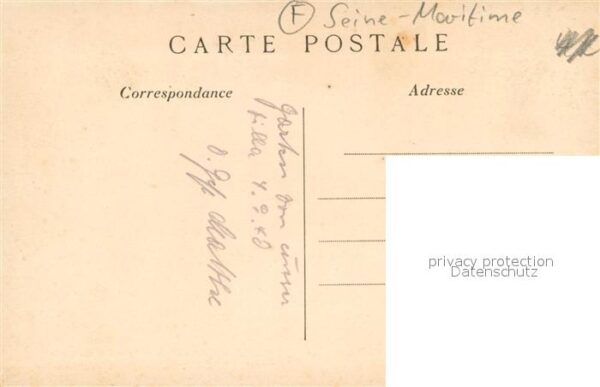 (F) Seine-Maritime
CARTE POSTALE
Correspondance
Adresse
Garten von unserer
Villa 4.9.40
privacy protection
Datenschutz